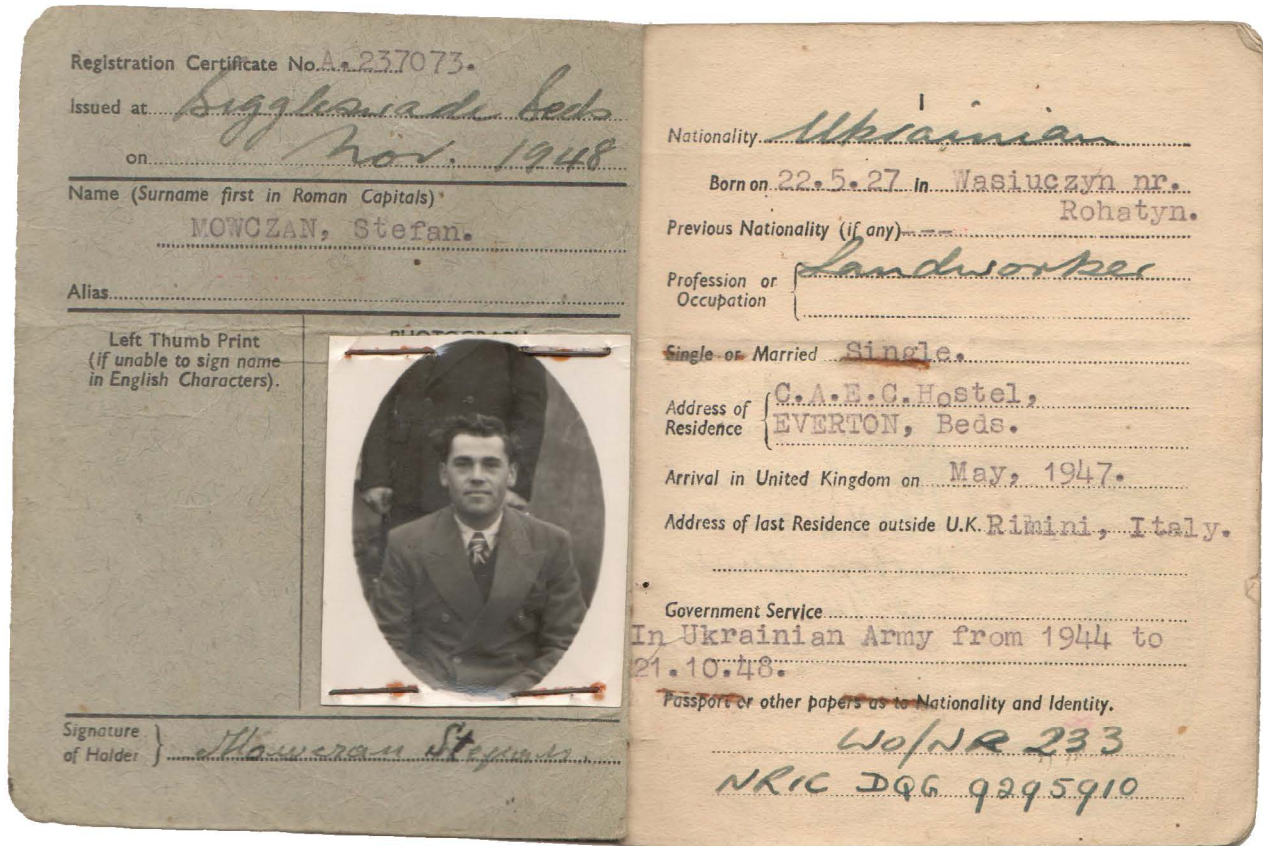 Registration Certificate No. A. 237073.
Issued at Biggleswade Beds
on Nov. 1948
Name (Surname first in Roman Capitals)
MOWCZAN, Stefan.
Alias
Left Thumb Print
(if unable to sign name
in English Characters).
PHOTOGRAPH
Signature
of Holder } Mowczan Stefan.
1
Nationality Ukrainian
Born on 22.5.27 in Wasiuczyn nr.
Rohatyn.
Previous Nationality (if any) ---
Profession or
Occupation { Landworker
Single or Married Single.
Address of
Residence { C.A.E.C.Hostel,
EVERTON, Beds.
Arrival in United Kingdom on May, 1947.
Address of last Residence outside U.K. Rimini, Italy.
Government Service
In Ukrainian Army from 1944 to
21.10.48.
Passport or other papers as to Nationality and Identity.
WO/NR 233
NRIC DQG 9295910